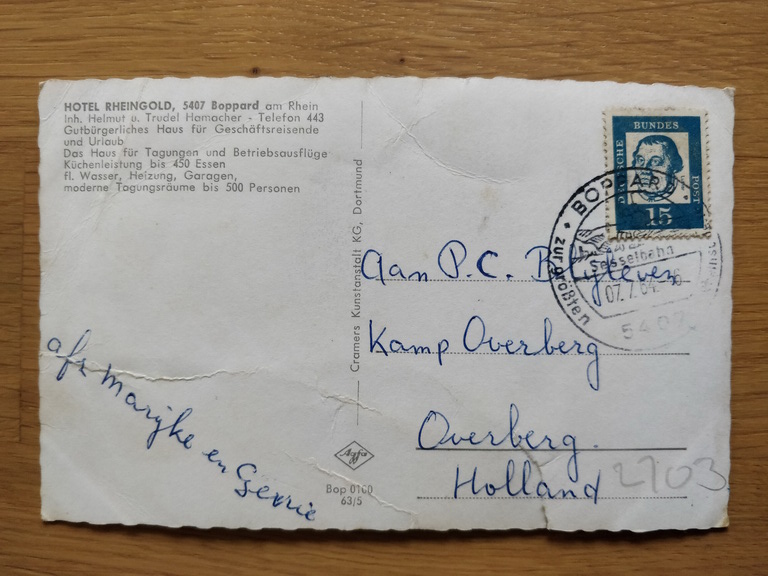 HOTEL RHEINGOLD, 5407 Boppard am Rhein
Inh. Helmut u. Trudel Hamacher - Telefon 443
Gutbürgerliches Haus für Geschäftsreisende
und Urlaub
Das Haus für Tagungen und Betriebsausflüge
Küchenleistung bis 450 Essen
fl. Wasser, Heizung, Garagen,
moderne Tagungsräume bis 500 Personen
afz Marijke en Gerrie
Cramers Kunstanstalt KG, Dortmund
Agfa
Bop 0100
63/5
DEUTSCHE BUNDES POST
15
BOPPARD
Sesselbahn
07.7.64
zur größten
5407
Aan P.C. Blijleven
Kamp Overberg
Overberg.
Holland
2703